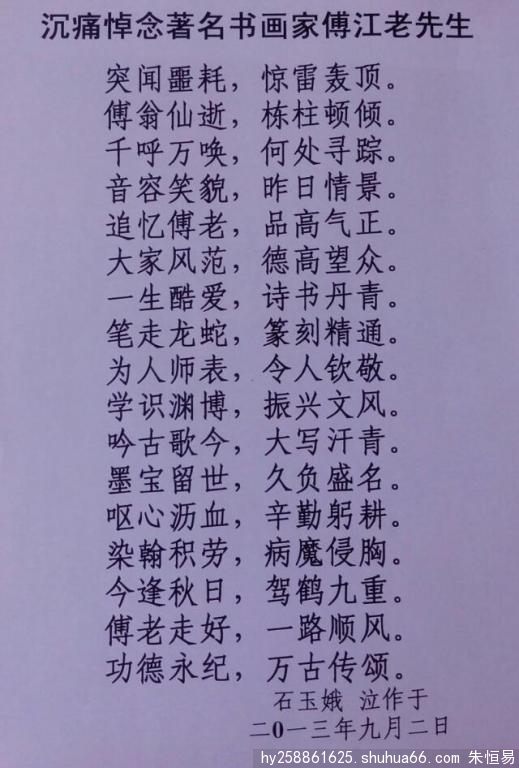 沉痛悼念著名书画家傅江老先生
突闻噩耗，惊雷轰顶。
傅翁仙逝，栋柱顿倾。
千呼万唤，何处寻踪。
音容笑貌，昨日情景。
追忆傅老，品高气正。
大家风范，德高望众。
一生酷爱，诗书丹青。
笔走龙蛇，篆刻精通。
为人师表，令人钦敬。
学识渊博，振兴文风。
吟古歌今，大写汗青。
墨宝留世，久负盛名。
呕心沥血，辛勤躬耕。
染翰积劳，病魔侵胸。
今逢秋日，驾鹤九重。
傅老走好，一路顺风。
功德永纪，万古传颂。
石玉娥 泣作于
二0一三年九月二日
hy258861625.shuhua66.com 朱恒易